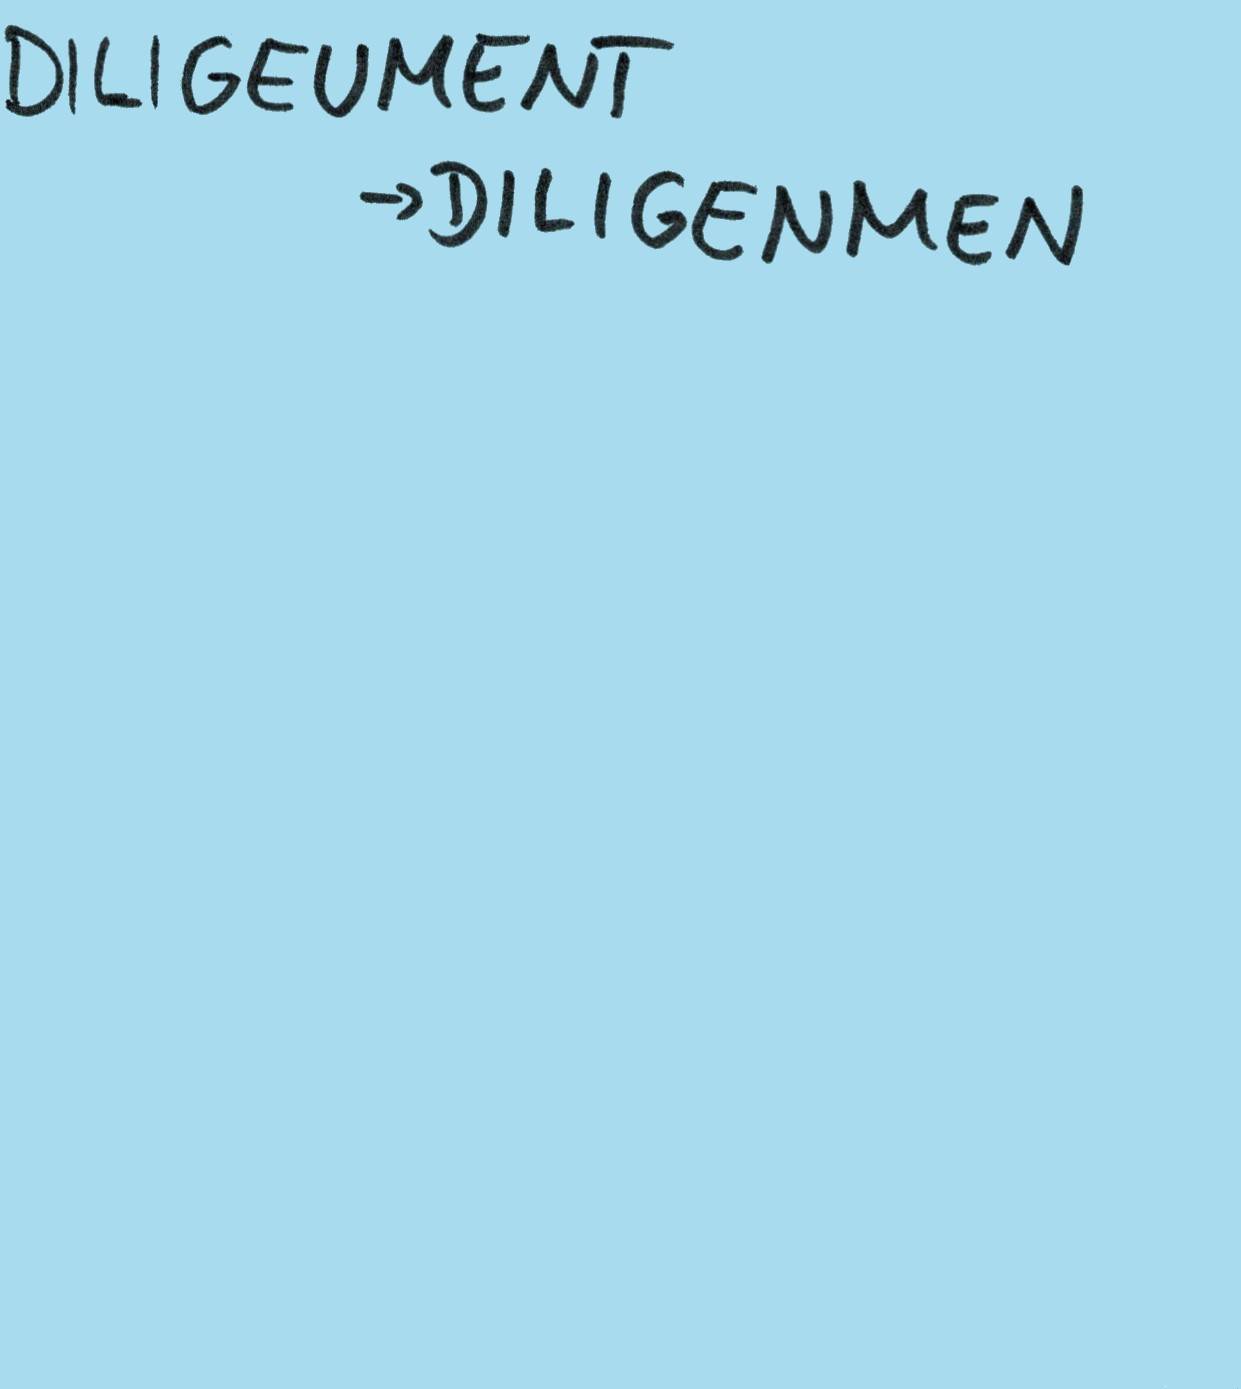 DILIGEUMENT
→DILIGENMEN